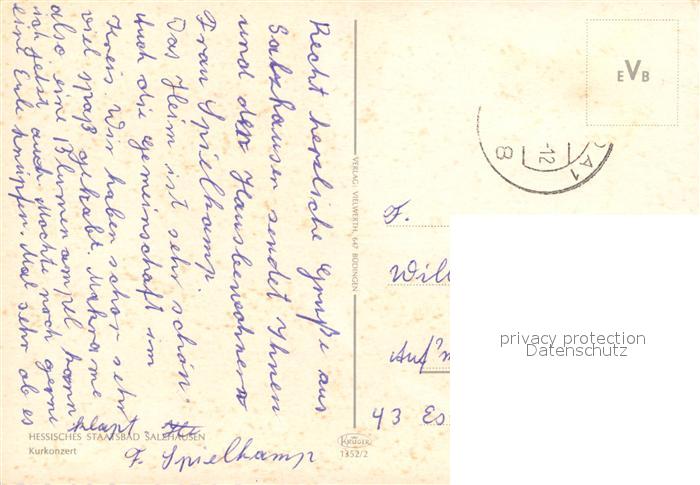 Recht herzliche Grüße aus
Salzhausen sendet Ihnen
und den Hausbewohnern
Frau Spielkamp.
Das Heim ist sehr schön.
Auch die Gemeinschaft im
Kreis. Wir haben schon sehr
viel spaß gehabt. Makrame
also eine Blumenampel, kann
ich jetzt auch. Möchte noch gerne
eine Eule knüpfen. Mal sehn ob es
klapt
F. Spielkamp
HESSISCHES STAATSBAD SALZHAUSEN
Kurkonzert
VERLAG VIELWERTH, 647 BÜDINGEN
KRÜGER
1352/2
EVB
-12
8
F.
Will
Auf'm
43 Es
privacy protection
Datenschutz